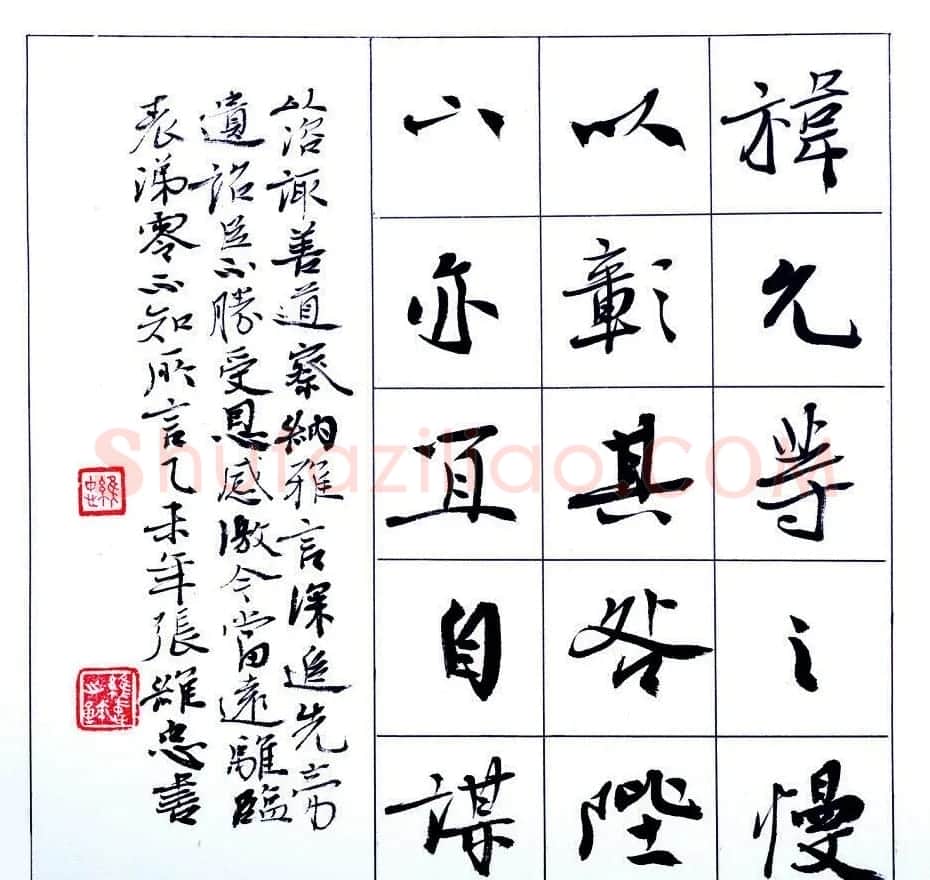 禕允等之慢
以彰其咎陛
下亦宜自謀
以諮諏善道察納雅言深追先帝
遺詔臣不勝受恩感激今當遠離臨
表涕零不知所言乙未年張維忠書
維忠
shufaziliao.COM